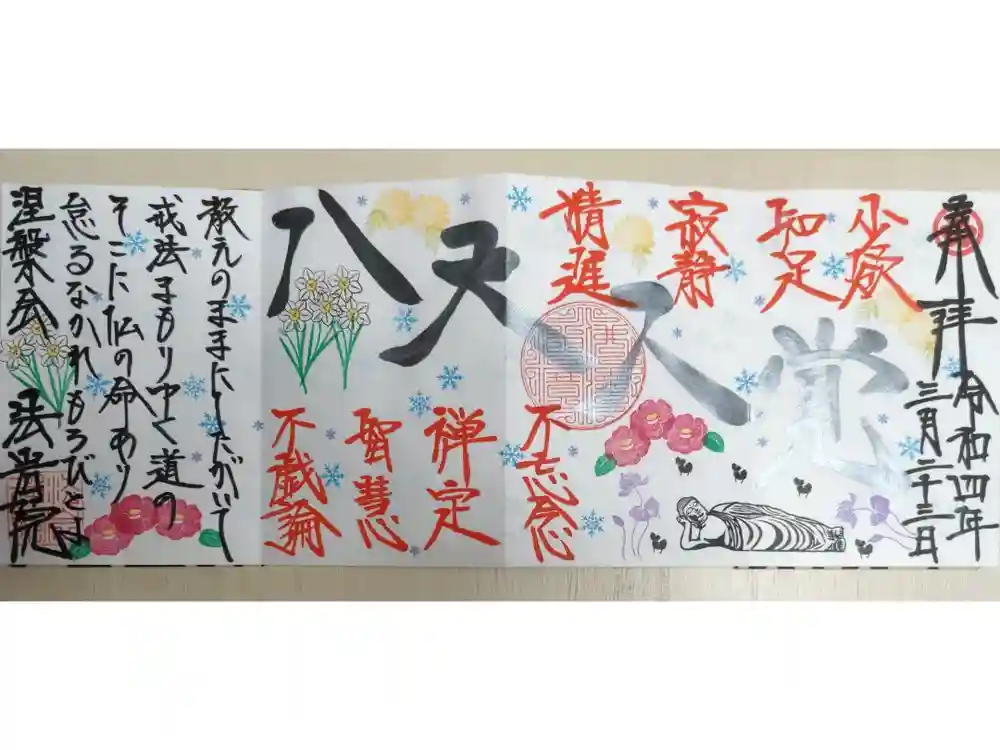 奉拝
令和四年
三月二十三日
少欲
知足
寂静
精進
八大人覚
不忘念
禅定
智慧
不戯論
教えのままにしたがいて
戒法まもりゆく道の
そこに仏の命あり
怠るなかれもろびとよ
涅槃会 法岩院